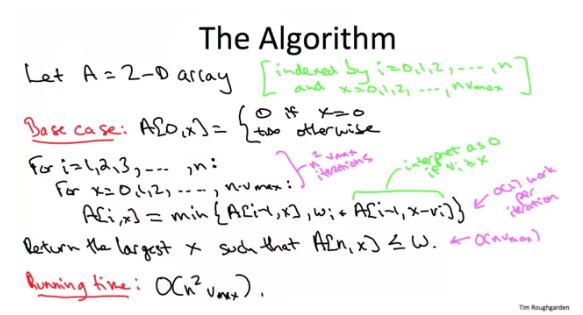 The Algorithm
Let A = 2-D array [indexed by i=0,1,2,...,n
and x=0,1,2,...,n·vmax]
Base case: A[0,x] = { 0 if x=0
+∞ otherwise
For i=1,2,3,...,n:
For x=0,1,2,...,n·vmax:
} n² vmax
iterations
interpret as 0
if vi ≥ x
A[i,x] = min{A[i-1,x], wi + A[i-1,x-vi]}
← O(1) work
per
iteration
Return the largest x such that A[n,x] ≤ W. ← O(nvmax)
Running time: O(n² vmax).
Tim Roughgarden